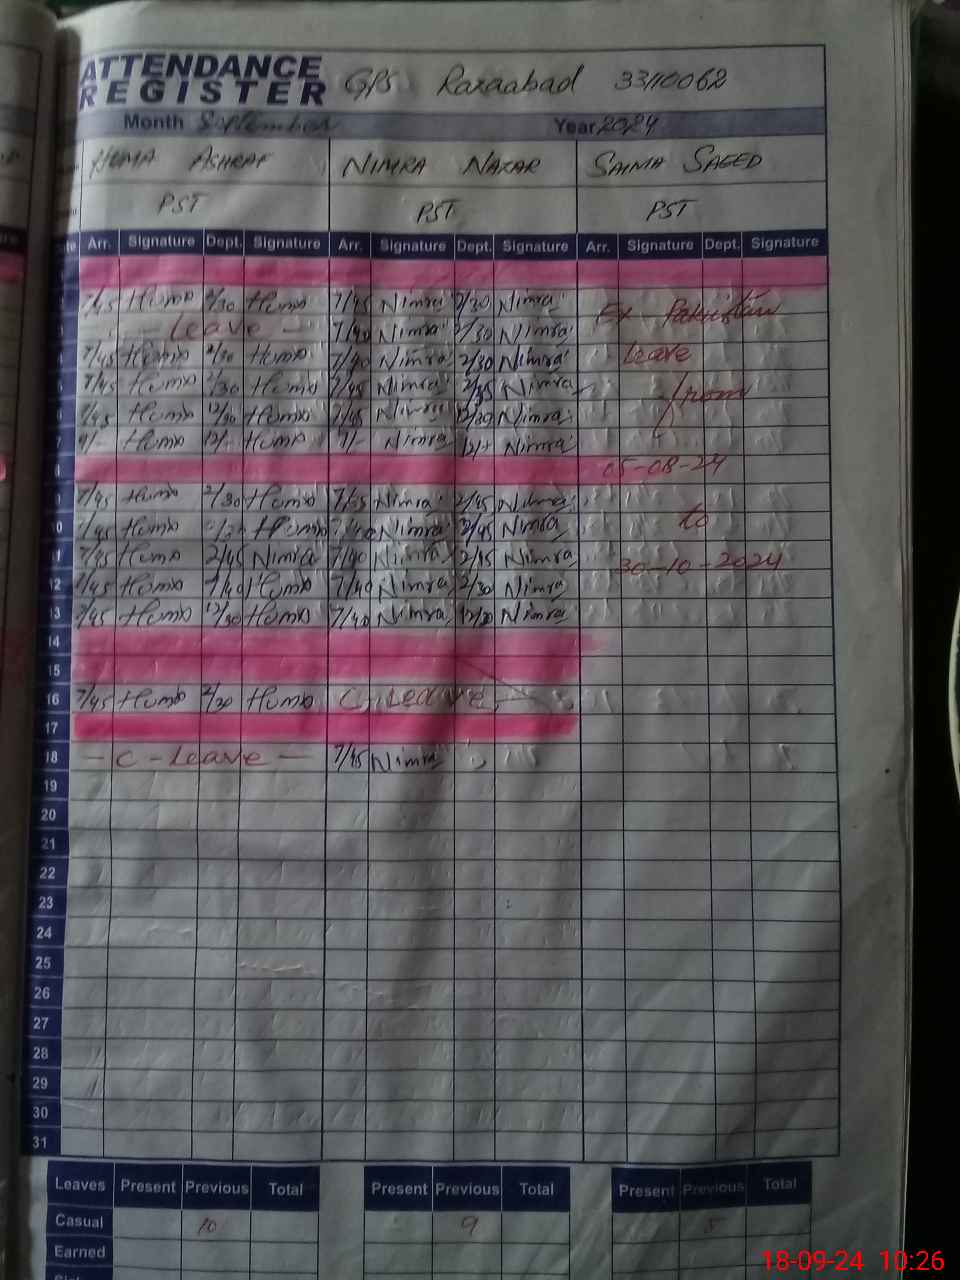 ATTENDANCE REGISTER GPS Razaabad 33110062
Month September Year 2024
HUMA ASHRAF NIMRA NAZAR SAIMA SAEED
PST PST PST
Arr. Signature Dept. Signature Arr. Signature Dept. Signature Arr. Signature Dept. Signature
7/45 Huma 2/30 Huma 7/45 Nimra 2/30 Nimra Ex Pakistan
Leave 7/40 Nimra 2/30 Nimra
7/45 Huma 2/30 Huma 7/40 Nimra 2/30 Nimra Leave
7/45 Huma 2/30 Huma 7/45 Nimra 2/35 Nimra from
7/45 Huma 12/30 Huma 7/45 Nimra 12/30 Nimra
7 Huma Huma 7/- Nimra 12/- Nimra
05-08-24
7/45 Huma 2/30 Huma 7/35 Nimra 2/45 Nimra
10 7/45 Huma 2/30 Huma 7/40 Nimra 2/45 Nimra to
11 7/45 Huma 2/45 Nimra 7/40 Nimra 2/45 Nimra 30-10-2024
12 7/45 Huma 1/40 Huma 7/40 Nimra 2/30 Nimra
13 7/45 Huma 12/30 Huma 7/40 Nimra 12/30 Nimra
14
15
16 7/45 Huma 2/30 Huma C-Leave
17
18 - C - Leave - 7/45 Nimra
19
20
21
22
23
24
25
26
27
28
29
30
31
Leaves Present Previous Total Present Previous Total Present Previous Total
Casual 10 9 5
Earned
18-09-24 10:26